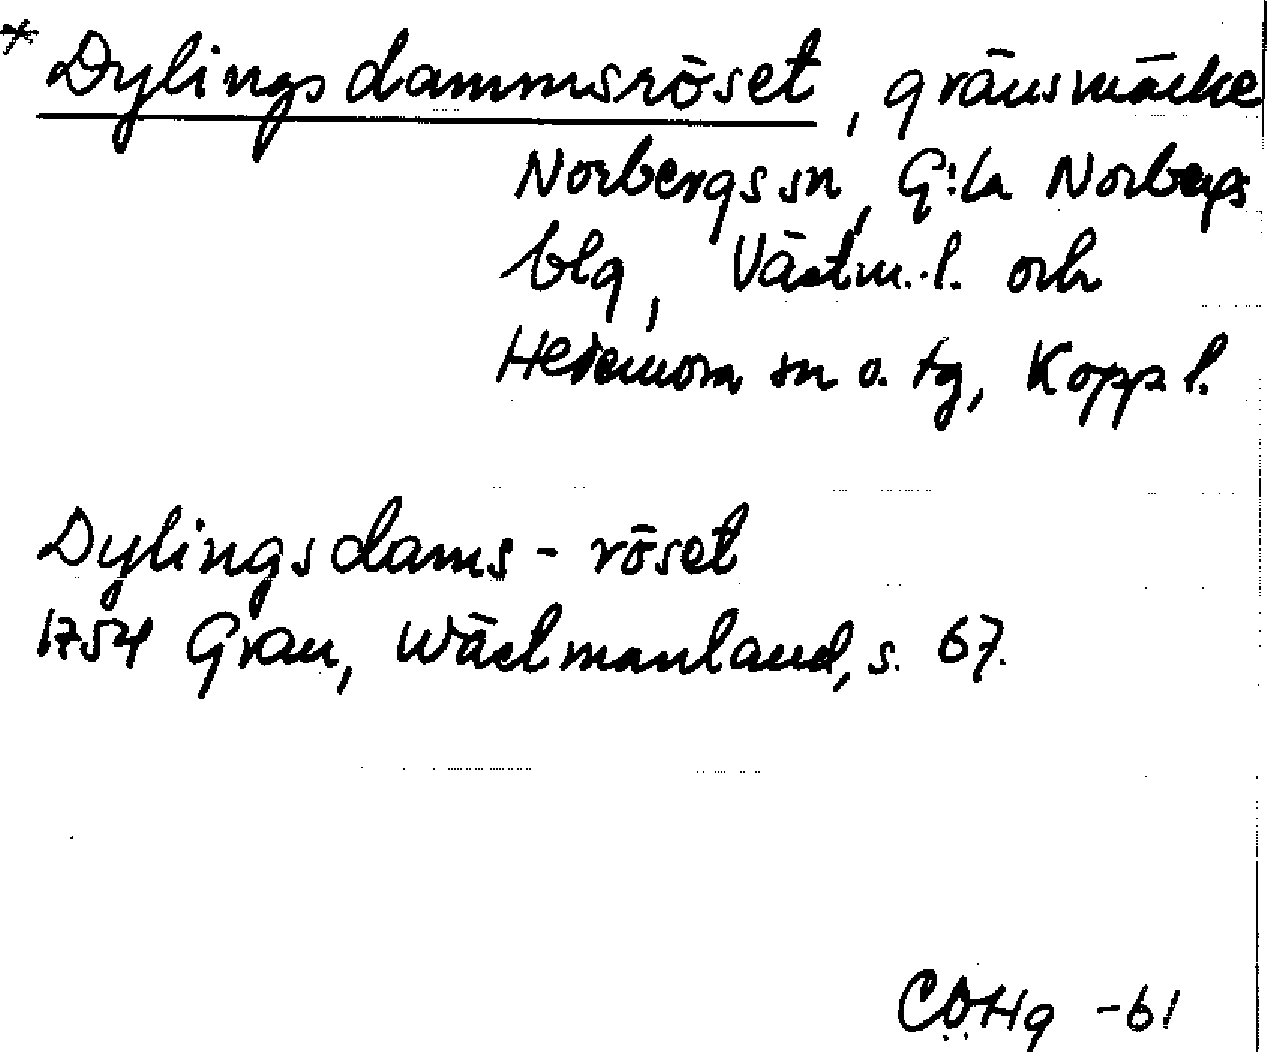 * Dylingsdammsröset, gränsmärke
Norbergs sn, G:la Norbergs
blg, Västm. l. och
Hedemora sn o. tg, Kopp l.
Dylingsdams - röset
1754 Grau, Wästmanland, s. 67.
CÖHg -61